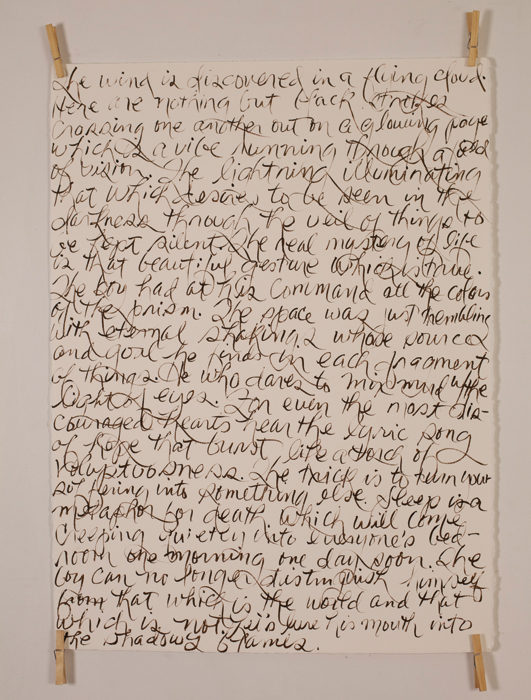 The wind is discovered in a flying cloud.
Here are nothing but black strokes
crossing one another out on a glowing page
which is a vibe running through a
of vision. The lightning illuminating
that which desires to be seen in the
darkness through the veil of things to
be kept silent. The real mystery of life
is that beautiful gesture which is true.
The boy had at his command all the colors
of the prism. The space was just trembling
with eternal shaking, whose source
and goal he finds in each fragment
of things. He who dares to mix mind with the
light of eyes. For even the most dis-
couraged hearts hear the lyric song
of hope that burst like a torch of
voluptuousness. The trick is to turn your
suffering into something else. Sleep is a
metaphor for death, which will come
creeping quietly into everyone's bed-
room one morning one day soon. The
boy can no longer distinguish himself
from that which is the world and that
which is not. mouth into
the shadows